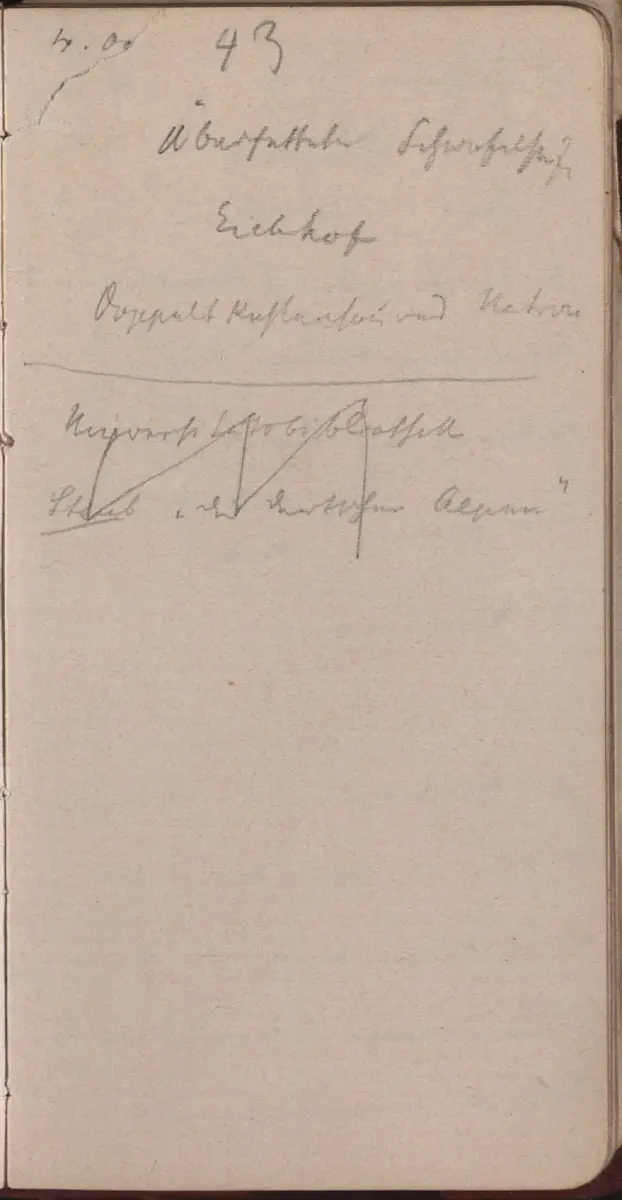 4.00 43
Überfettete Schwefelseife
Eichhof
Doppelt Kohlensaures Natron
Universitätsbibliothek
Staub "die deutschen Alpen"